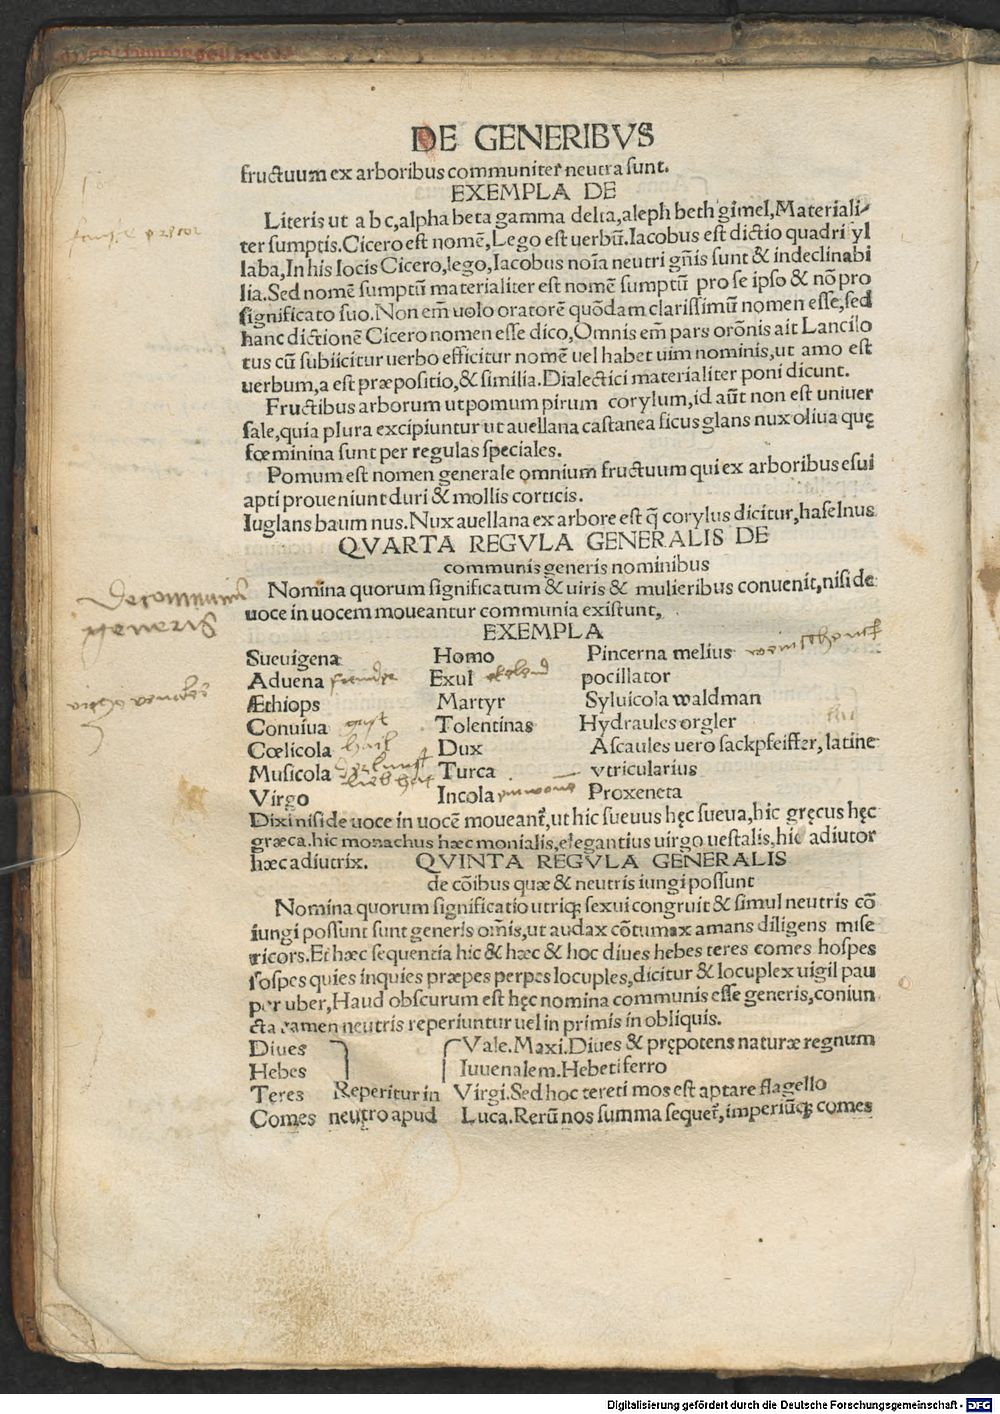 DE GENERIBVS
fructuum ex arboribus communiter neutra sunt.
EXEMPLA DE
Literis ut a b c, alpha beta gamma delta, aleph beth gimel, Materiali⸗
ter sumptis. Cicero est nomē, Lego est uerbū. Iacobus est dictio quadri syl
laba, In his locis Cicero, lego, Iacobus noīa neutri gn̄is sunt & indeclinabi
lia. Sed nomē sumptū materialiter est nomē sumptū pro se ipso & nō pro
significato suo. Non em̄ uolo oratorē quōdam clarissimū nomen esse, sed
hanc dictionē Cicero nomen esse dico, Omnis em̄ pars orōnis ait Lancilo
tus cū subiicitur uerbo efficitur nomē uel habet uim nominis, ut amo est
uerbum, a est præpositio, & similia. Dialectici materialiter poni dicunt.
Fructibus arborum ut pomum pirum corylum, id aūt non est uniuer
sale, quia plura excipiuntur ut auellana castanea ficus glans nux oliua quę
fœminina sunt per regulas speciales.
Pomum est nomen generale omnium fructuum qui ex arboribus esui
apti proueniunt duri & mollis corticis.
Iuglans baum nus. Nux auellana ex arbore est q̄ corylus dicitur, haselnus
QVARTA REGVLA GENERALIS DE
communis generis nominibus
Nomina quorum significatum & uiris & mulieribus conuenit, nisi de
uoce in uocem moueantur communia existunt,
De communis
generis
EXEMPLA
Sueuigena Homo Pincerna melius
Aduena Exul pocillator
Æthiops Martyr Syluicola waldman
Conuiua gast Tolentinas Hydraules orgler
Cœlicola Dux Ascaules uero sackpfeiffer, latine
Musicola Turca vtricularius
Virgo Incola Proxeneta
Dixi nisi de uoce in uocē moueant᷑, ut hic sueuus hęc sueua, hic gręcus hęc
græca. hic monachus hæc monialis, elegantius uirgo uestalis, hic adiutor
hæc adiutrix. QVINTA REGVLA GENERALIS
de cōibus quæ & neutris iungi possunt
Nomina quorum significatio utriq; sexui congruit & simul neutris cō
iungi possunt sunt generis om̄is, ut audax cōtumax amans diligens mise
ricors. Et hæc sequentia hic & hæc & hoc diues hebes teres comes hospes
sospes quies inquies præpes perpes locuples, dicitur & locuplex uigil pau
per uber, Haud obscurum est hęc nomina communis esse generis, coniun
cta tamen neutris reperiuntur uel in primis in obliquis.
Diues Vale. Maxi. Diues & prępotens naturæ regnum
Hebes Iuuenalem. Hebeti ferro
Teres Reperitur in Virgi. Sed hoc tereti mos est aptare flagello
Comes neutro apud Luca. Rerū nos summa sequet᷑, imperiūq; comes
Digitalisierung gefördert durch die Deutsche Forschungsgemeinschaft - DFG